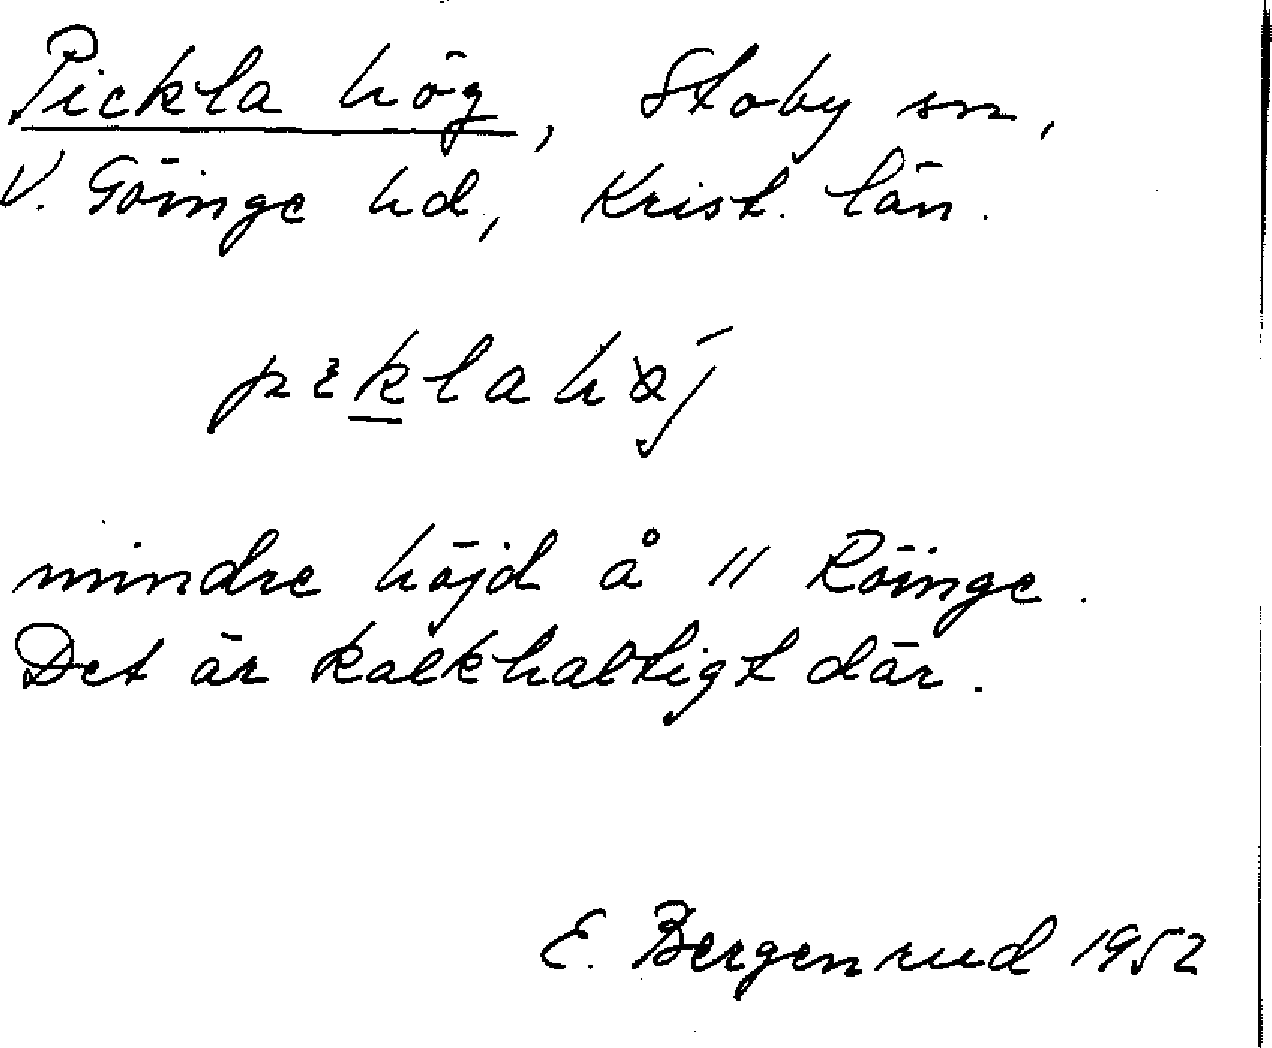 Pickla hög, Stoby sn,
V. Göinge hd, Krist. län.
mindre höjd å " Röinge.
Det är kalkhaltigt där.
E. Bergenrud 1952